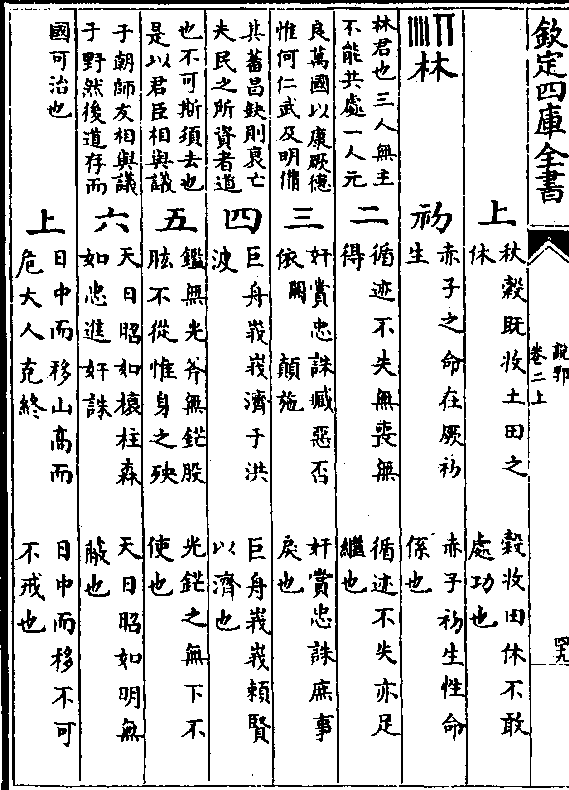 欽定四庫全書
說郛
卷二上
四九
上
秋穀既收土田之
休
穀收田休不敢
處功也
林
初
赤子之命在厥初
生
赤子初生性命
係也
林君也三人無主
不能共處一人元
二
循迹不失無喪無
得
循迹不失亦足
繼也
良萬國以康厥德
惟何仁武及明備
三
奸賞忠誅臧惡否
依闕 顛施
奸賞忠誅庶事
戾也
其蕃昌缺則衰亡
夫民之所資者道
四
巨舟峩峩濟于洪
波
巨舟峩峩賴賢
以濟也
也不可斯須去也
是以君臣相與議
五
鑑無光斧無鋩股
肱不從惟身之殃
光鋩之無下不
使也
于朝師友相與議
于野然後道存而
六
天日昭如榱柱森
如忠進奸誅
天日昭如明無
蔽也
國可治也
上
日中而移山高而
危大人克終
日中而移不可
不戒也